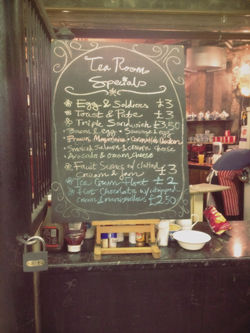 Tea Room
Specials
Egg & Soldiers £3
Toast & Pate £3
Triple Sandwich £3.50
• Bacon & egg • Sausage & egg
• Prawn Mayonnaise • Coronation Chicken
• Smoked Salmon & cream cheese
• Avocado & cream cheese
Fruit Scones w/ clotted £3
Cream & jam
Ice Cream Float £2
Hot Chocolate w/ whipped
cream & marshmallows £2.50